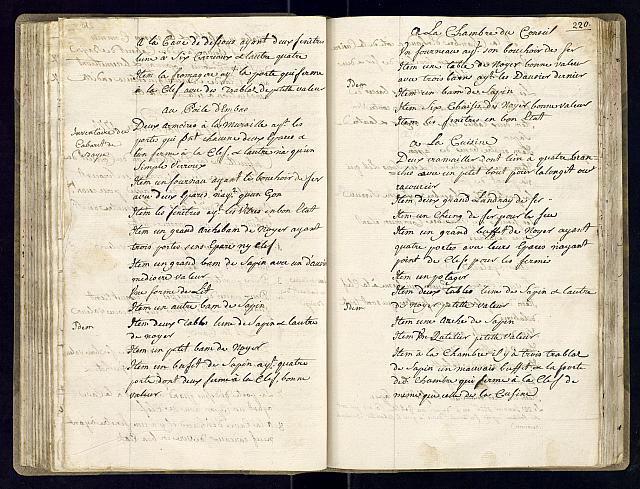 a la Cave de desous ayant deux fenêtres
lune a Six Carreaux & lautre quatre
Item la fromagere ayt la porte qui ferme
à la Clef avec des Trablat de ptitte valeur
au Poile d'Embas
Inventaire du
Cabaret de
Deux armoires à la Muraille ayt les
portes qui font chacune deux Epares &
lun ferme à la Clef & lautre na qu'un
Simple verroux
Item un fourneau ayant le bouchoir de fer
avec deux Epares n'ayt qu'un Gon
Item les fenêtres ayt les Vitres en bon Etat
Item un grand Archebam de Noyer ayant
trois portes sens Epare ny Clef
Item un grand bam de Sapin avec un
mediocre valeur
une forme de Lit
Item un autre bam de Sapin
Idem
Item deux Tables lune de Sapin & lautre
de noyer
Item un petit bam de Noyer
Item un bufet de Sapin ayt quatre
porte dont deux ferme à la Clef, bonne
valeur
220.
a La Chambre du Conseil
Un fourneau ayt son bouchoir de fer
Idem
Item une table de Noyer bonne valeur
avec trois bams ayt les Dausier dernier
Item un bam de Sapin
Item Six Chaises de Noyer bonne valeur
Item les fenêtres en bon Etat
a La Cuisine
Deux cramailler dont lun à quatre bran
ches avec un petit bout pour lalonger ou
racourcir
Item deux grand Landray de fer
Item un Cheng de fer pour le feu
Item un grand buffet de Noyer ayant
quatre portes avec leur Epares n'ayant
point de Clefs pour les fermés
Item un potager
Idem
Item deux tables lune de Sapin & lautre
de Noyer ptitte valeur
Item une Arche de Sapin
Item Un Ratelier ptitte valeur
Item à la Chambre il y a trois trablat
de Sapin un mauvais buffet & la porte
de dte Chambre qui ferme à la Clef de
meme que celle de la Cuisine